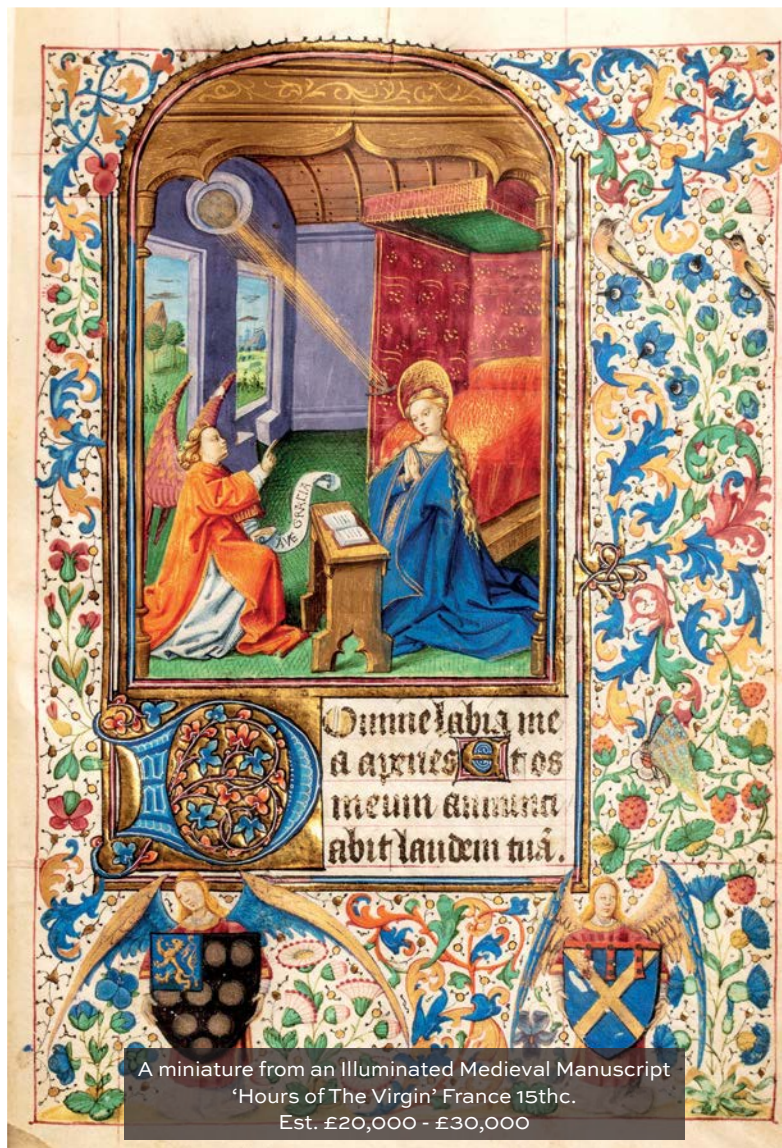 AVE GRACIA
Domine labia me
a aperies Et os
meum annunci
abit laudem tuā.
A miniature from an Illuminated Medieval Manuscript
‘Hours of The Virgin’ France 15thc.
Est. £20,000 - £30,000